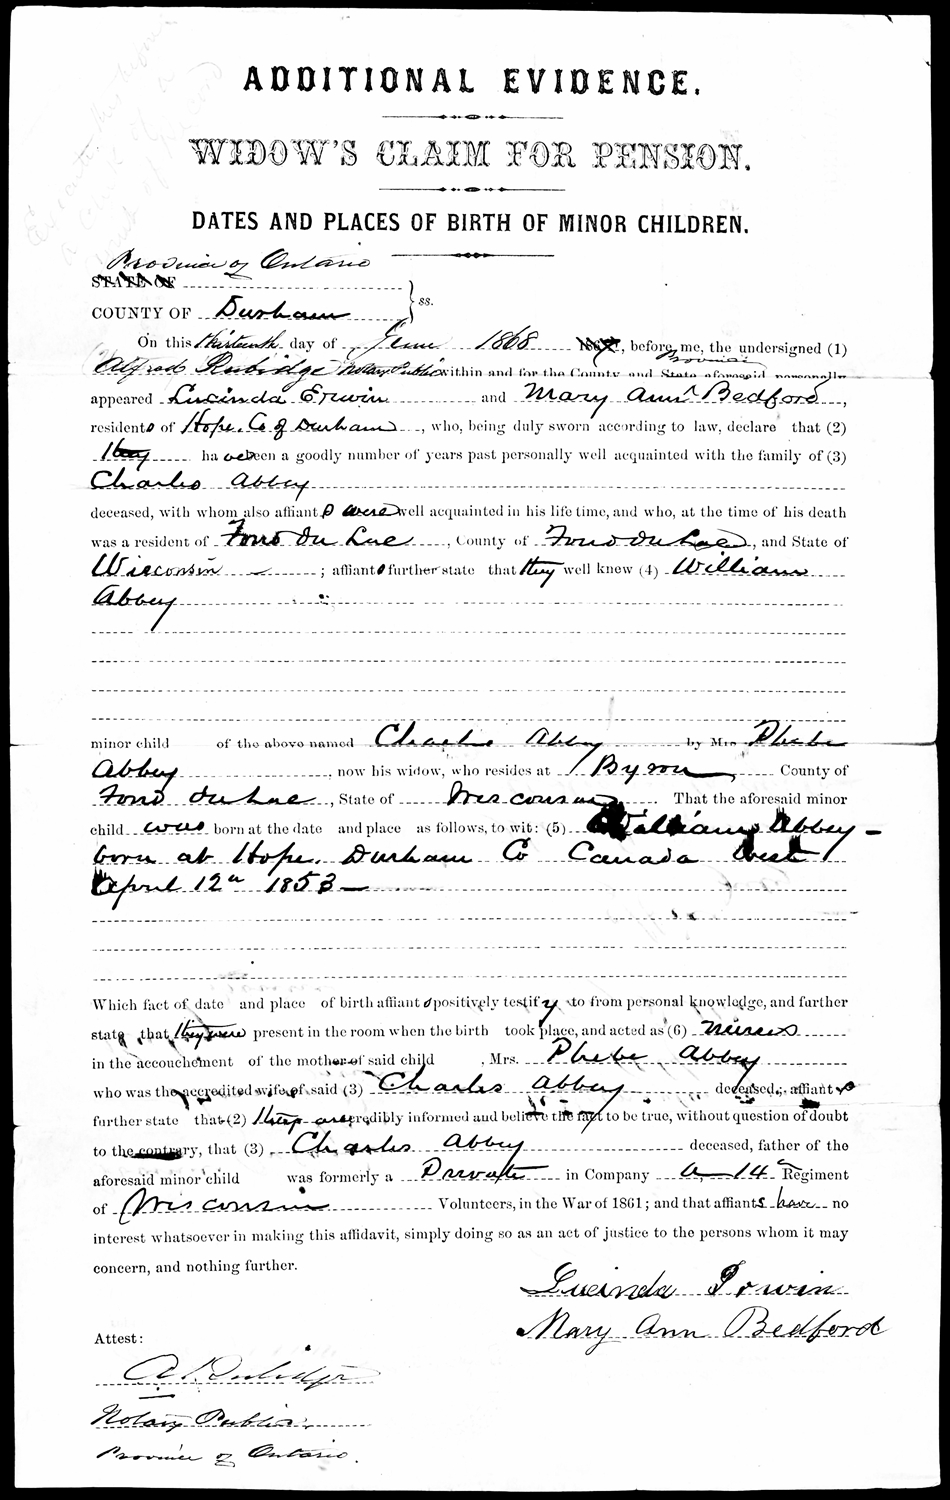 ADDITIONAL EVIDENCE.
WIDOW'S CLAIM FOR PENSION.
DATES AND PLACES OF BIRTH OF MINOR CHILDREN.
Province of Ontario
STATE OF
COUNTY OF Durham } ss.
On this thirteenth day of June 1868 186 , before me, the undersigned (1)
Province
Alfred Rubidge Notary Public within and for the County and State aforesaid personally
appeared Lucinda Erwin and Mary Ann Bedford,
residents of Hope. Co of Durham, who, being duly sworn according to law, declare that (2)
they have been a goodly number of years past personally well acquainted with the family of (3)
Charles Abbey
deceased, with whom also affiants were well acquainted in his life time, and who, at the time of his death
was a resident of Fond du Lac, County of Fond du Lac, and State of
Wisconsin ; affiants further state that they well knew (4) William
Abbey
minor child of the above named Charles Abbey by Mrs Phebe
Abbey, now his widow, who resides at Byron, County of
Fond du Lac, State of Wisconsin. That the aforesaid minor
child was born at the date and place as follows, to wit: (5) William Abbey -
born at Hope. Durham Co Canada West
April 12th 1853 —
Which fact of date and place of birth affiants positively testify to from personal knowledge, and further
state that they were present in the room when the birth took place, and acted as (6) nurses
in the accouchement of the mother of said child , Mrs. Phebe Abbey
who was the accredited wife of said (3) Charles Abbey deceased; affiants
further state that (2) they are credibly informed and believe the fact to be true, without question of doubt
to the contrary, that (3) Charles Abbey deceased, father of the
aforesaid minor child was formerly a Private in Company A - 14th Regiment
of Wisconsin Volunteers, in the War of 1861; and that affiants have no
interest whatsoever in making this affidavit, simply doing so as an act of justice to the persons whom it may
concern, and nothing further.
Lucinda Irwin
Mary Ann Bedford
Attest:
A. Rubidge
Notary Public.
Province of Ontario.